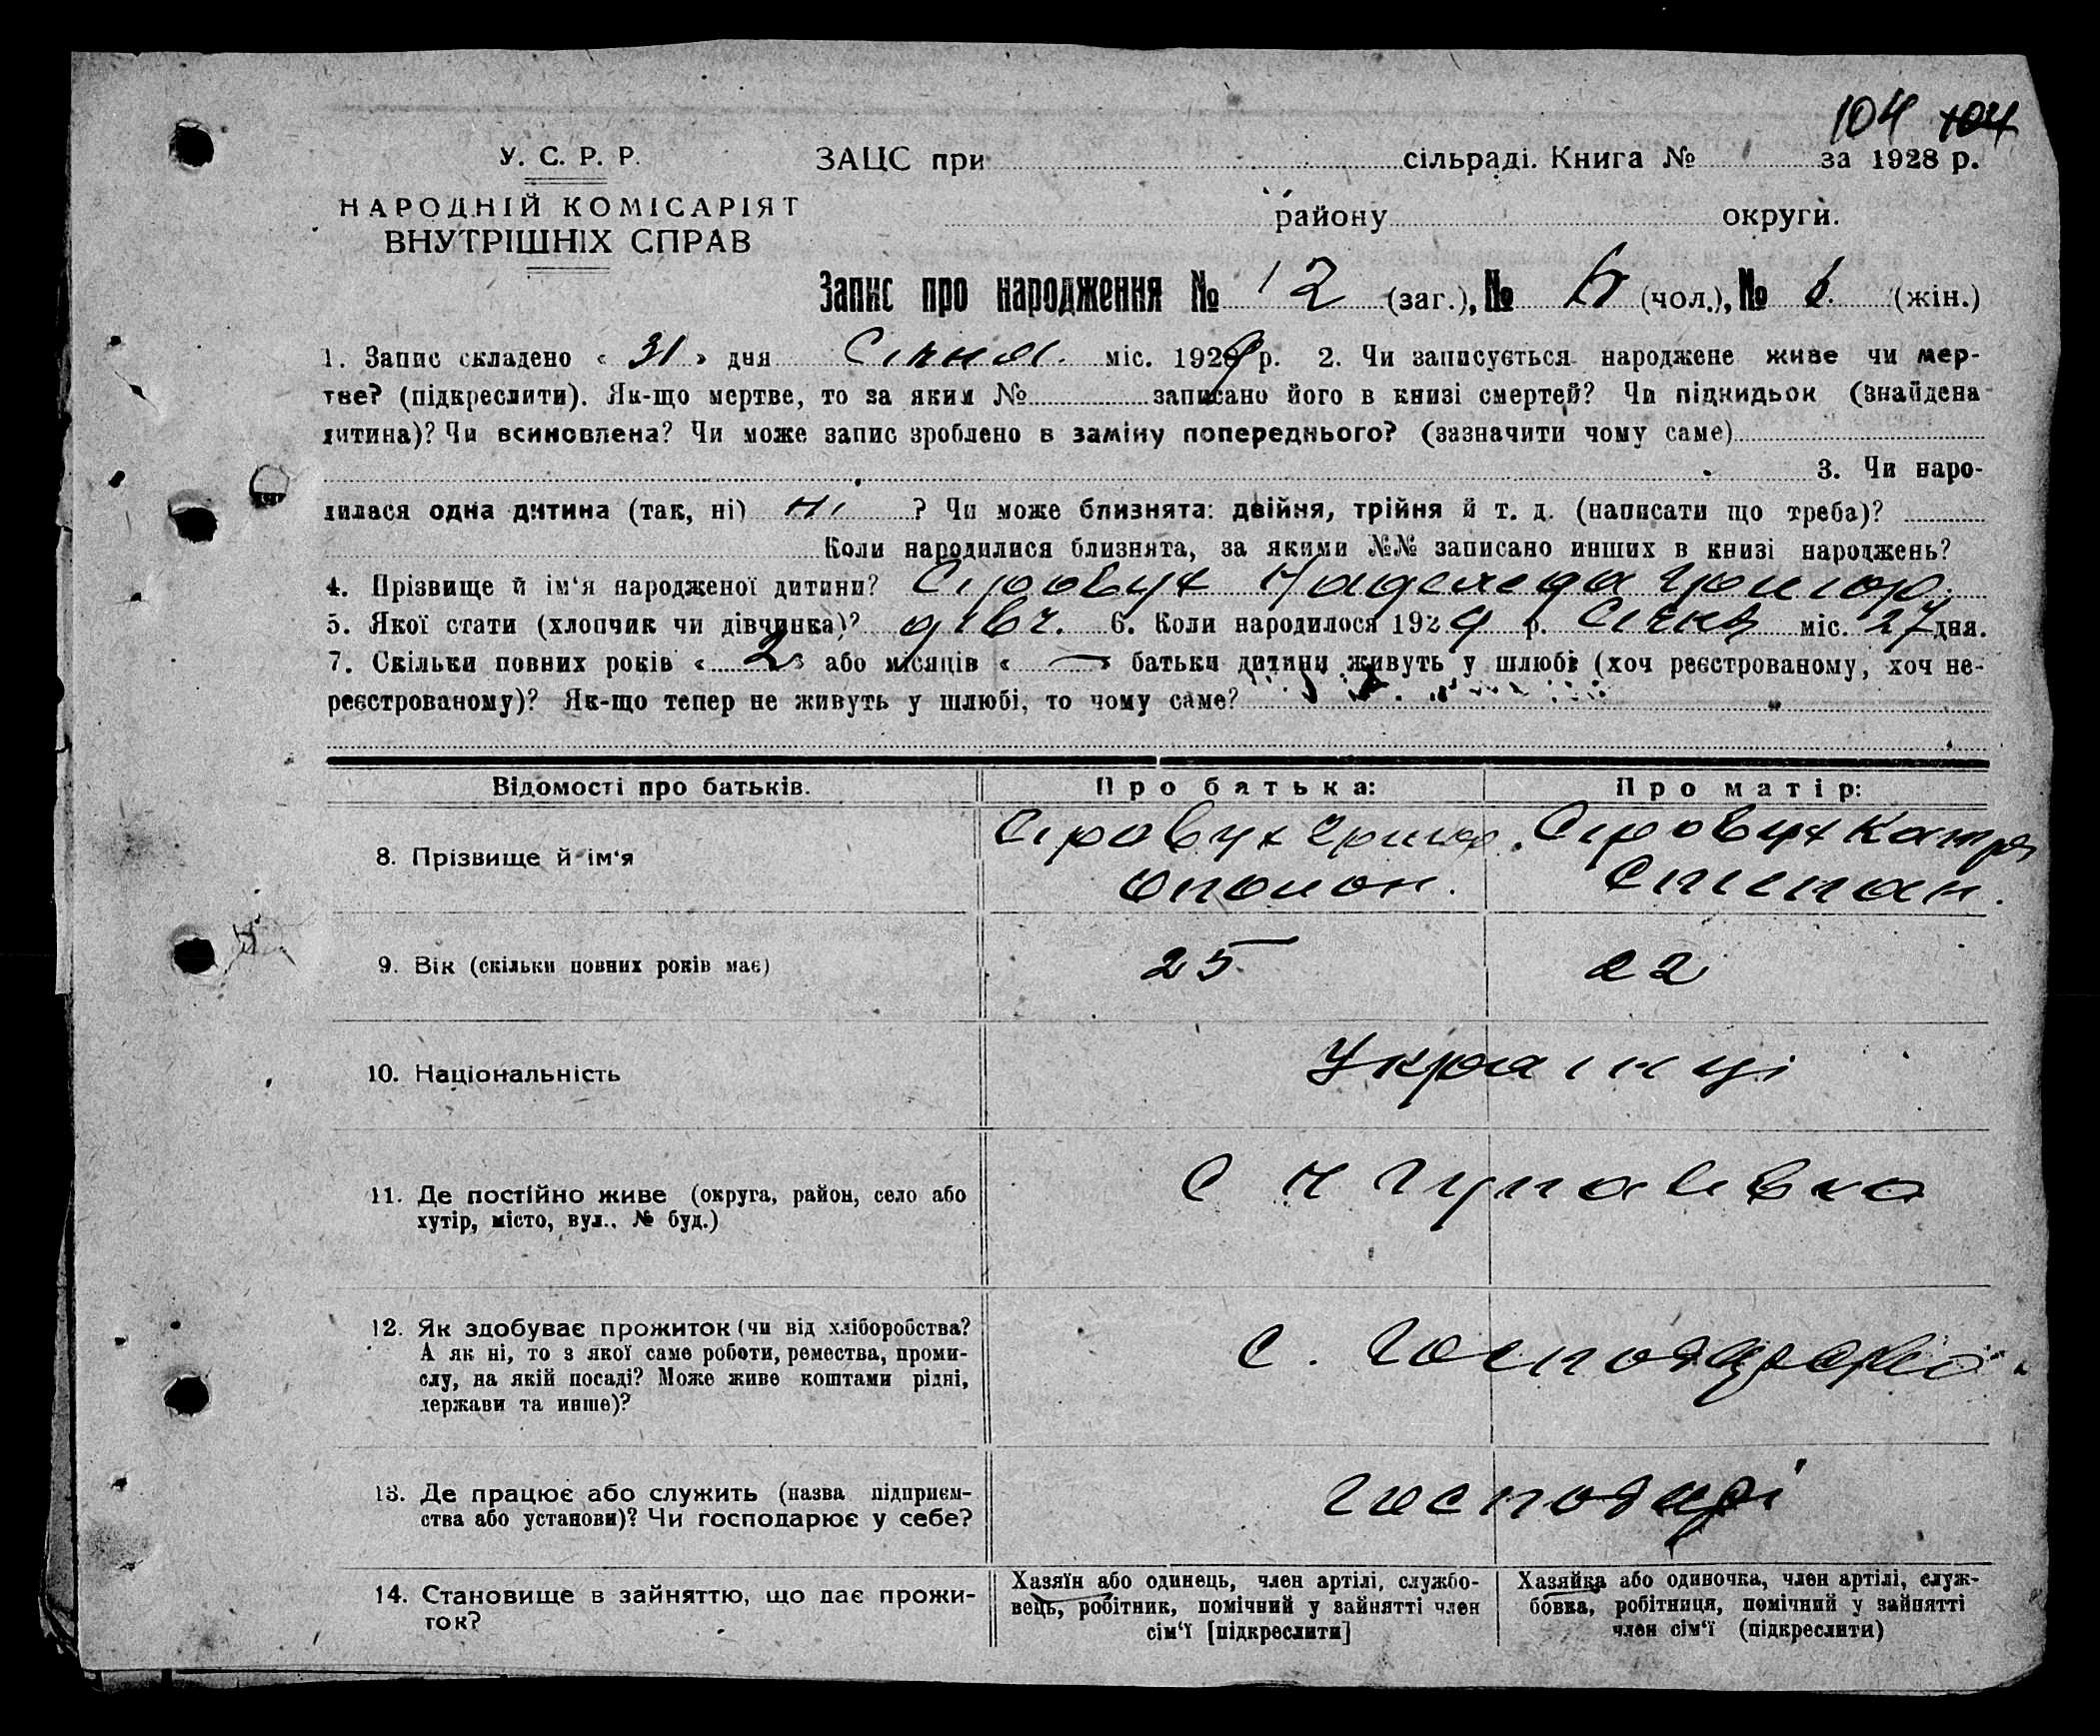 104 104
У. С. Р. Р.
ЗАЦС при сільраді. Книга № за 1928 р.
НАРОДНІЙ КОМІСАРІЯТ
ВНУТРІШНІХ СПРАВ
району округи.
Запис про народження № 12 (заг.), № (чол.), № 6. (жін.)
1. Запис складено « 31 » дня Січня міс. 1929 р. 2. Чи записується народжене живе чи мер-
тве? (підкреслити). Як-що мертве, то за яким № записано його в книзі смертей? Чи підкидьок (знайдена
дитина)? Чи всиновлена? Чи може запис зроблено в заміну попереднього? (зазначити чому саме)
3. Чи наро-
дилася одна дитина (так, ні) ні ? Чи може близнята: двійня, трійня й т. д. (написати що треба)?
Коли народилися близнята, за якими №№ записано инших в книзі народжень?
4. Прізвище й ім‘я народженої дитини? Сіровух Надежда Григор.
5. Якої стати (хлопчик чи дівчинка)? дівч. 6. Коли народилося 1929 р. Січня міс. 27 дня.
7. Скільки повних років « 2 » або місяців « — » батьки дитини живуть у шлюбі (хоч реєстрованому, хоч не-
реєстрованому)? Як-що тепер не живуть у шлюбі, то чому саме?
Відомості про батьків. Про батька: Про матір:
8. Прізвище й ім‘я Сіровух Григор. Сіровух Катря
Степан.
9. Вік (скільки повних років має) 25 22
10. Національність Українці
11. Де постійно живе (округа, район, село або
хутір, місто, вул., № буд.) С
12. Як здобуває прожиток (чи від хліборобства?
А як ні, то з якої саме роботи, ремества, проми-
слу, на якій посаді? Може живе коштами рідні,
держави та инше)? С. Господарство
13. Де працює або служить (назва підприєм-
ства або установи)? Чи господарює у себе? господарі
14. Становище в зайняттю, що дає прожи-
ток?
Хазяїн або одинець, член артілі, службо-
вець, робітник, помічний у зайнятті член
сім‘ї [підкреслити]
Хазяйка або одиночка, член артілі, служ-
бовка, робітниця, помічний у зайнятті
член сім‘ї (підкреслити)